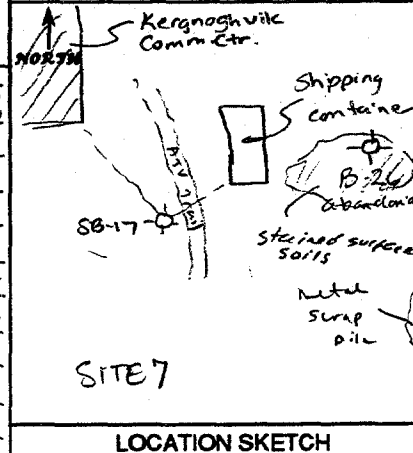 NORTH
Kergnoghvile
Comm. Ctr.
Shipping
container
ATV Trail
SB-17
B-26
abandoned
stained surface
soils
metal
scrap
pile
SITE 7
LOCATION SKETCH